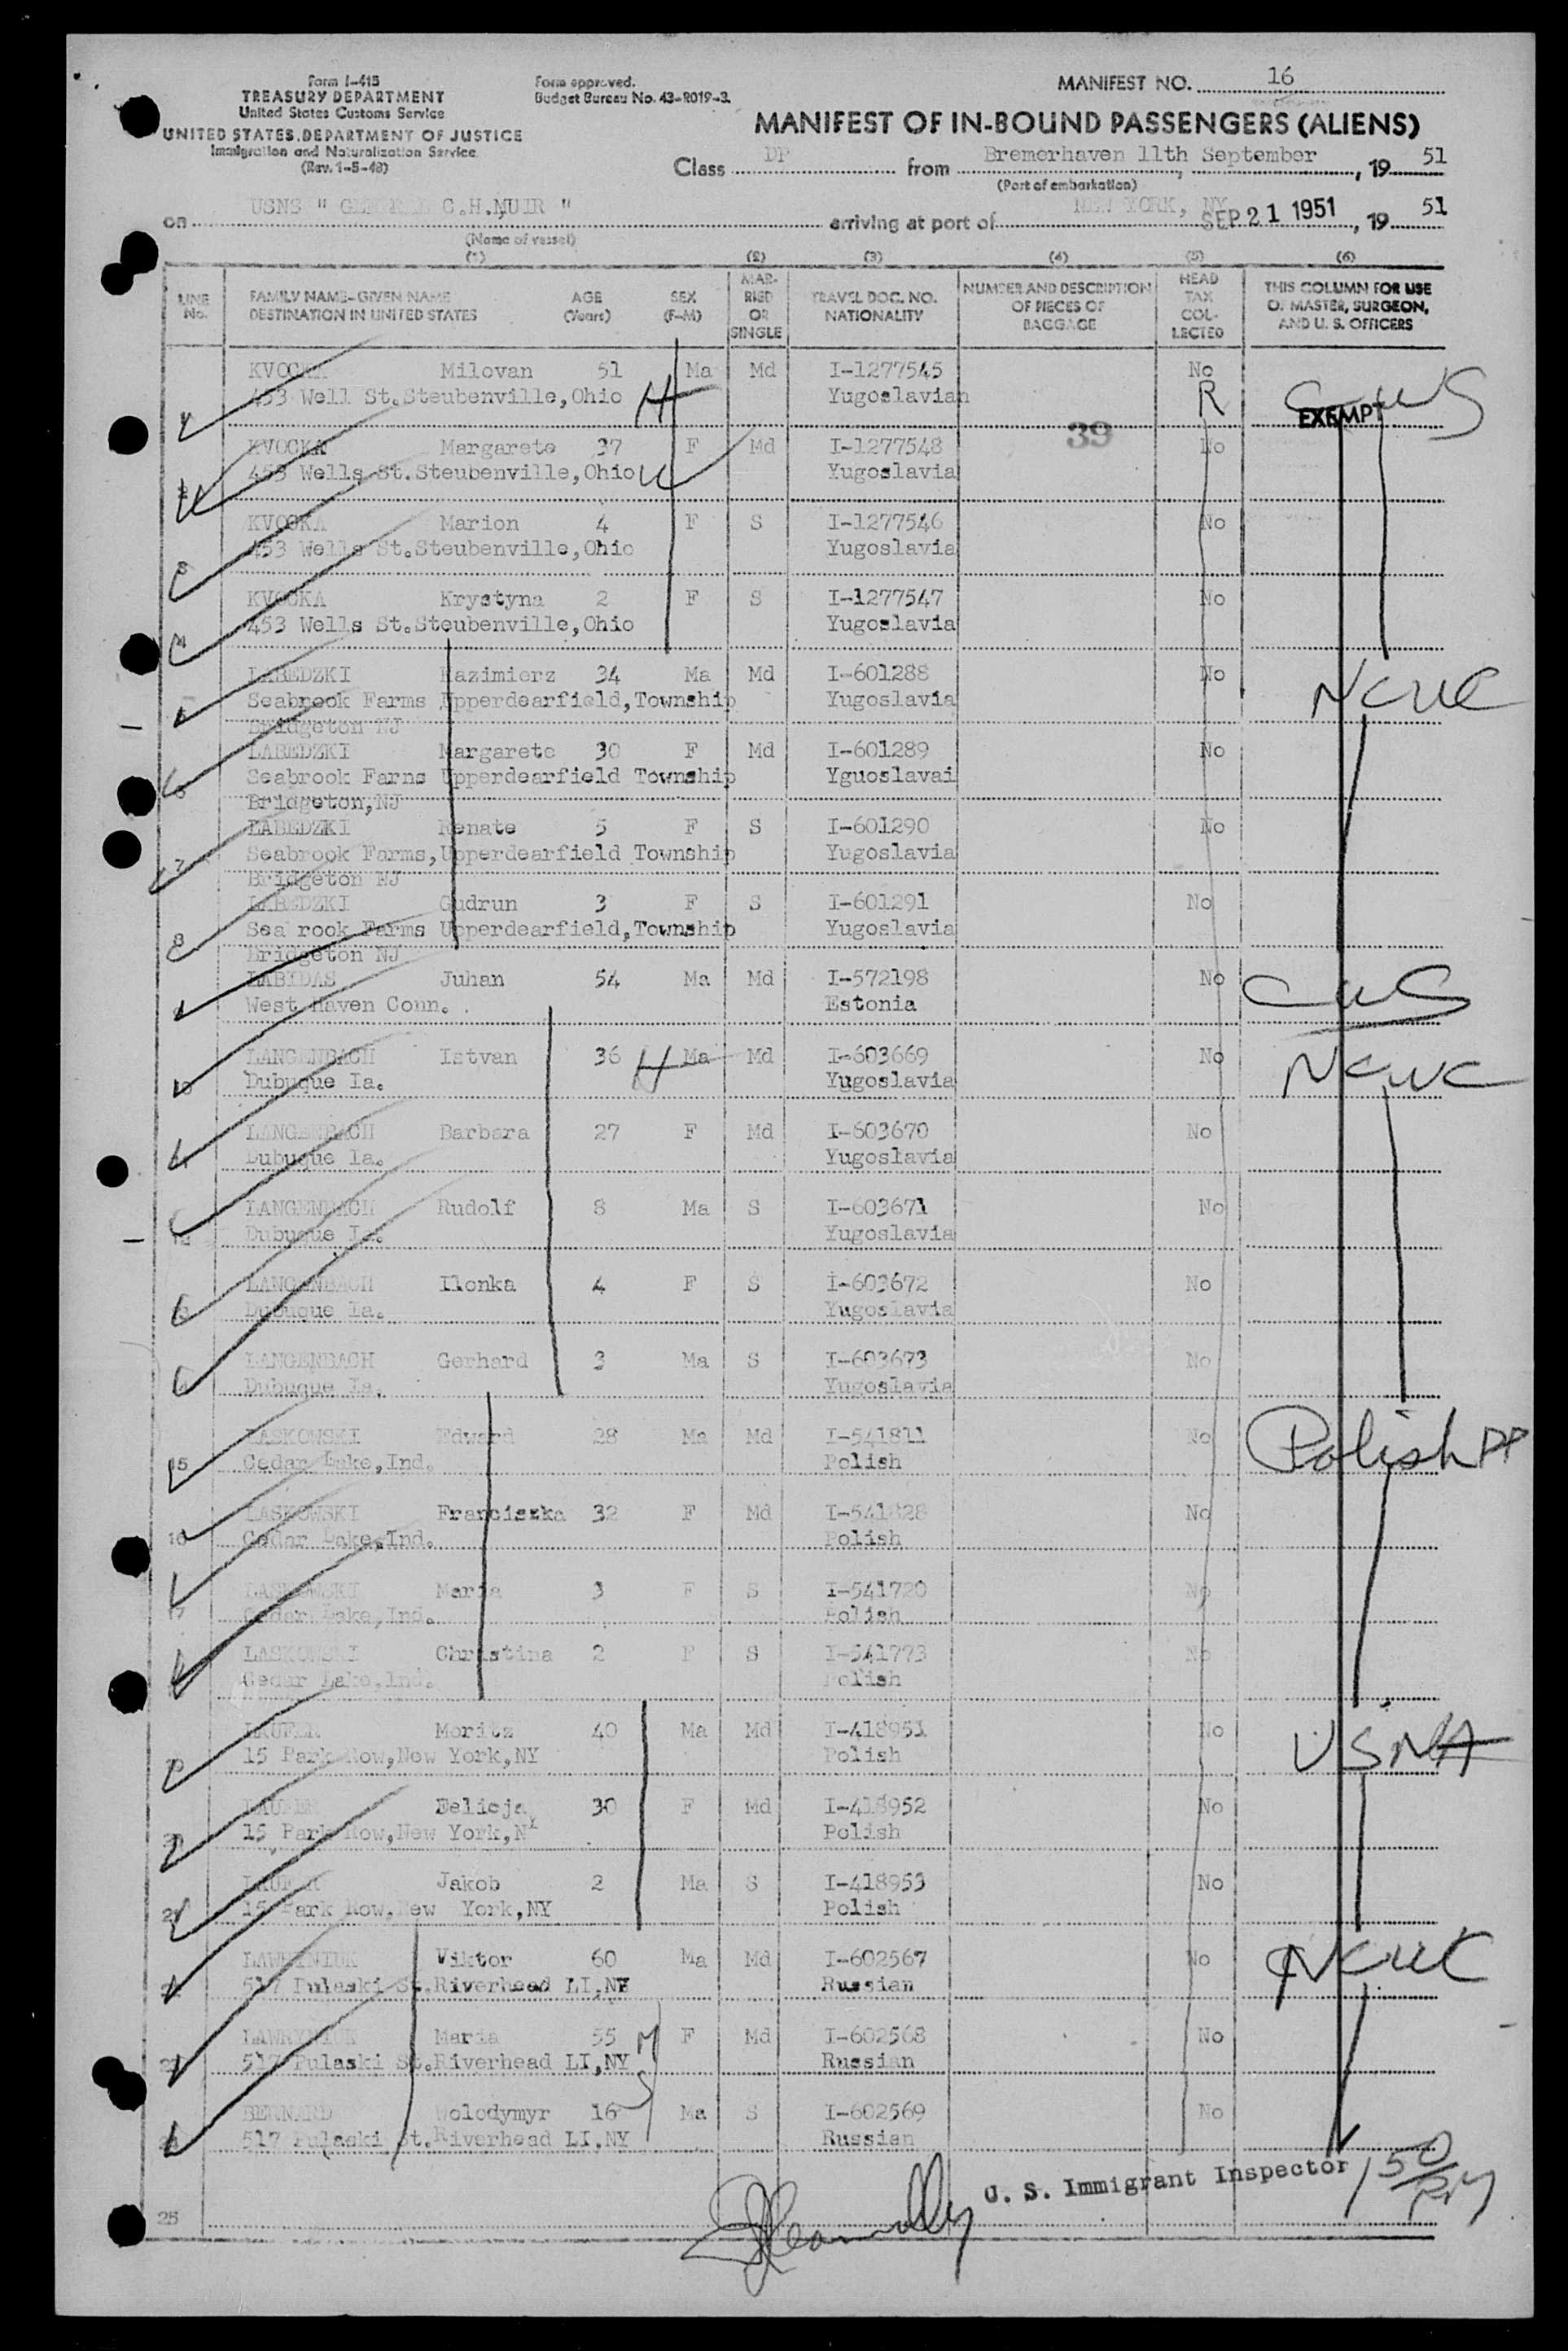 Form I-415
TREASURY DEPARTMENT
United States Customs Service
UNITED STATES DEPARTMENT OF JUSTICE
Immigration and Naturalization Service
(Rev. 1-5-48)
Form approved.
Budget Bureau No. 43-R019-3.
MANIFEST NO. 16
MANIFEST OF IN-BOUND PASSENGERS (ALIENS)
Class DP from Bremerhaven 11th September, 19 51
(Port of embarkation)
on USNS " GENERAL C.H.MUIR " arriving at port of NEW YORK, NY SEP 21 1951, 19 51
(Name of vessel)
(1) (2) (3) (4) (5) (6)
LINE No. FAMILY NAME-GIVEN NAME DESTINATION IN UNITED STATES AGE (Years) SEX (F-M) MARRIED OR SINGLE TRAVEL DOC. NO. NATIONALITY NUMBER AND DESCRIPTION OF PIECES OF BAGGAGE HEAD TAX COLLECTED THIS COLUMN FOR USE OF MASTER, SURGEON, AND U. S. OFFICERS
KVOCKA Milovan 51 Ma Md I-1277545 No
453 Well St.Steubenville,Ohio H Yugoslavian R EXEMPT CWS
39
KVOCKA Margarete 37 F Md I-1277548 No
453 Wells St.Steubenville,Ohio W Yugoslavia
KVOCKA Marion 4 F S I-1277546 No
3 453 Wells St.Steubenville,Ohio Yugoslavia
KVOCKA Krystyna 2 F S I-1277547 No
4 453 Wells St.Steubenville,Ohio Yugoslavia
LABEDZKI Kazimierz 34 Ma Md I-601288 No NCWC
Seabrook Farms Upperdearfield,Township Yugoslavia
Bridgeton NJ
LABEDZKI Margarete 30 F Md I-601289 No
Seabrook Farns Upperdearfield Township Yguoslavai
Bridgeton,NJ
LABEDZKI Renate 5 F S I-601290 No
7 Seabrook Farms,Upperdearfield Township Yugoslavia
Bridgeton NJ
LABEDZKI Gudrun 3 F S I-601291 No
8 Sea rook Farms Upperdearfield,Township Yugoslavia
Bridgeton NJ
LABIDAS Juhan 54 Ma Md I-572198 No CWS
West Haven Conn. Estonia
LANGENBACH Istvan 36 H Ma Md I-603669 No NCWC
Dubuque Ia. Yugoslavia
LANGENBACH Barbara 27 F Md I-603670 No
Dubuque Ia. Yugoslavia
LANGENBACH Rudolf 8 Ma S I-603671 No
12 Dubuque Ia. Yugoslavia
LANGENBACH Ilonka 4 F S I-603672 No
13 Dubuque Ia. Yugoslavia
LANGENBACH Gerhard 3 Ma S I-603673 No
Dubuque Ia. Yugoslavia
LASKOWSKI Edward 28 Ma Md I-541811 No Polish DP
15 Cedar Lake,Ind. Polish
LASKOWSKI Franciszka 32 F Md I-541828 No
16 Cedar Lake,Ind. Polish
LASKOWSKI Maria 3 F S I-541720 No
17 Cedar Lake,Ind. Polish
LASKOWSKI Christina 2 F S I-541773 No
Cedar Lake,Ind. Polish
LAUFER Moritz 40 Ma Md I-418951 No USNA
15 Park Row,New York,NY Polish
LAUFER Felicja 30 F Md I-418952 No
15 Park Row,New York,NY Polish
LAUFER Jakob 2 Ma S I-418953 No
21 15 Park Row,New York,NY Polish
LAWRYNIUK Viktor 60 Ma Md I-602567 No NCWC
517 Pulaski St.Riverhead LI,NY Russian
LAWRYNIUK Maria 55 M F Md I-602568 No
517 Pulaski St.Riverhead LI,NY Russian
BERNARD Wolodymyr 16 S Ma S I-602569 No
517 Pulaski St.Riverhead LI,NY Russian
U. S. Immigrant Inspector 150 PM
25